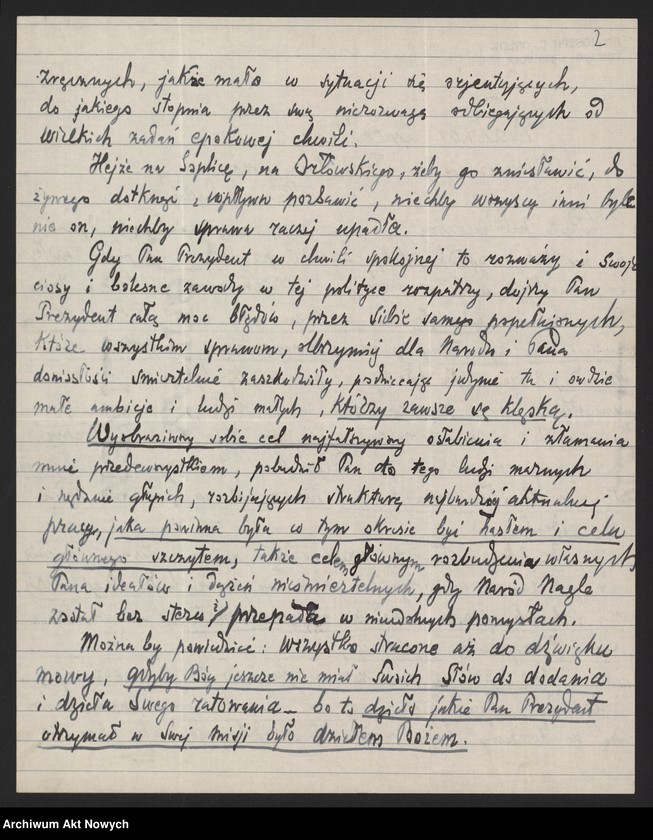 2
zręcznych, jakże mało w sytuacji się orjentujących,
do jakiego stopnia przez swą nierozwagą odbiegających od
wielkich zadań epokowej chwili.
Hejże na Soplicę, na Orłowskiego, żeby go zniesławić, do
żywego dotknąć, wpływu pozbawić, niechby wszyscy inni byle
nie on, niechby sprawa raczej upadła.
Gdy Pan Prezydent w chwili spokojnej to rozważy i Swoje
ciosy i bolesne zawody w tej polityce rozpatrzy, dojrzy Pan
Prezydent całą moc błędów, przez siebie samego popełnionych,
które wszystkim sprawom, olbrzymiej dla Narodu i Pana
doniosłości śmiertelnie zaszkodziły, podniecając jedynie tu i ówdzie
małe ambicje i ludzi małych, którzy zawsze są klęską.
Wyobraziwszy sobie cel najfatalniejszy osłabienia i złamania
mnie przedewszystkiem, pobudził Pan do tego ludzi marnych
i głupich, rozbijających strukturę najbardziej aktualnej
pracy, jaka powinna była w tym okresie być hasłem i celu
głównego szczytem, także celem głównym rozbudzenia własnych
Pana ideałów i dążeń nieśmiertelnych, gdy Naród Nagle
został bez steru i przepada w niezdolnych pomysłach.
Można by powiedzieć: wszystko stracone aż do dźwięku
mowy, gdyby Bóg jeszcze nie miał Swoich słów do dodania
i dzieła Swego ratowania – bo to dzieło jakie Pan Prezydent
otrzymał w Swej misji było dziełem Bożem.
Archiwum Akt Nowych